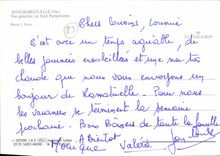 83350 RAMATUELLE (Var)
Vue générale, au fond Pampelonne
Chers Cousins, Cousine
C'est avec un temps agréable, de
belles journées ensoleillées et une mer très
chaude que nous vous envoyons un
bonjour de Ramatuelle. Pour nous
les vacances se terminent la semaine
prochaine. Bons Baisers de toute la famille
A Bientôt
Monique Valérie